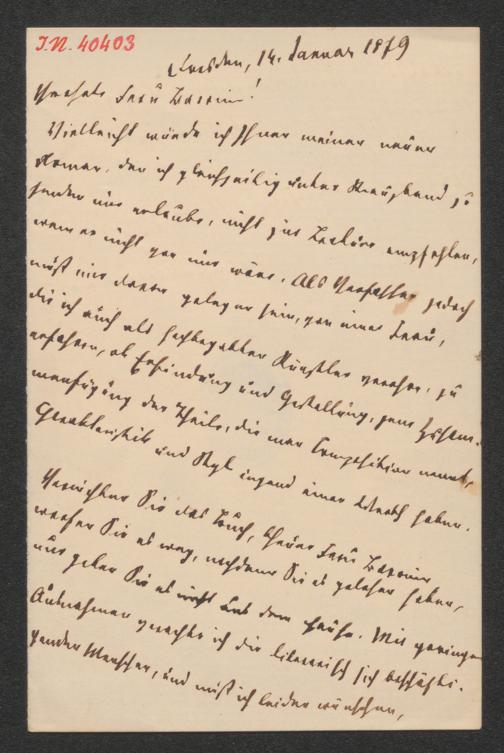 I.N. 40403
Dresden, 14. Januar 1879
Verehrte Frau Baronin!
Vielleicht würde ich Ihnen meinen neuen
Roman, den ich gleichzeitig unter Kreuzband zu
senden mir erlaube, nicht zur Lectüre empfehlen,
wenn er nicht von mir wäre. Als Verfasser jedoch
muß mir daran gelegen sein, von einer Frau,
die ich auch als hochbegabten Künstler verehre, zu
erfahren, ob Erfindung und Gestaltung, jene Zusam-
menfügung der Theile, die man Composition nennt,
Charakteristik und Styl irgend einen Werth haben.
Vernichten Sie das Buch, theure Frau Baronin
werfen Sie es weg, nachdem Sie es gelesen haben,
nur geben Sie es nicht aus dem Hause. Mit geringen
Ausnahmen verachte ich die literarisch sich beschäfti-
genden Menschen, und muß ich leider wünschen,